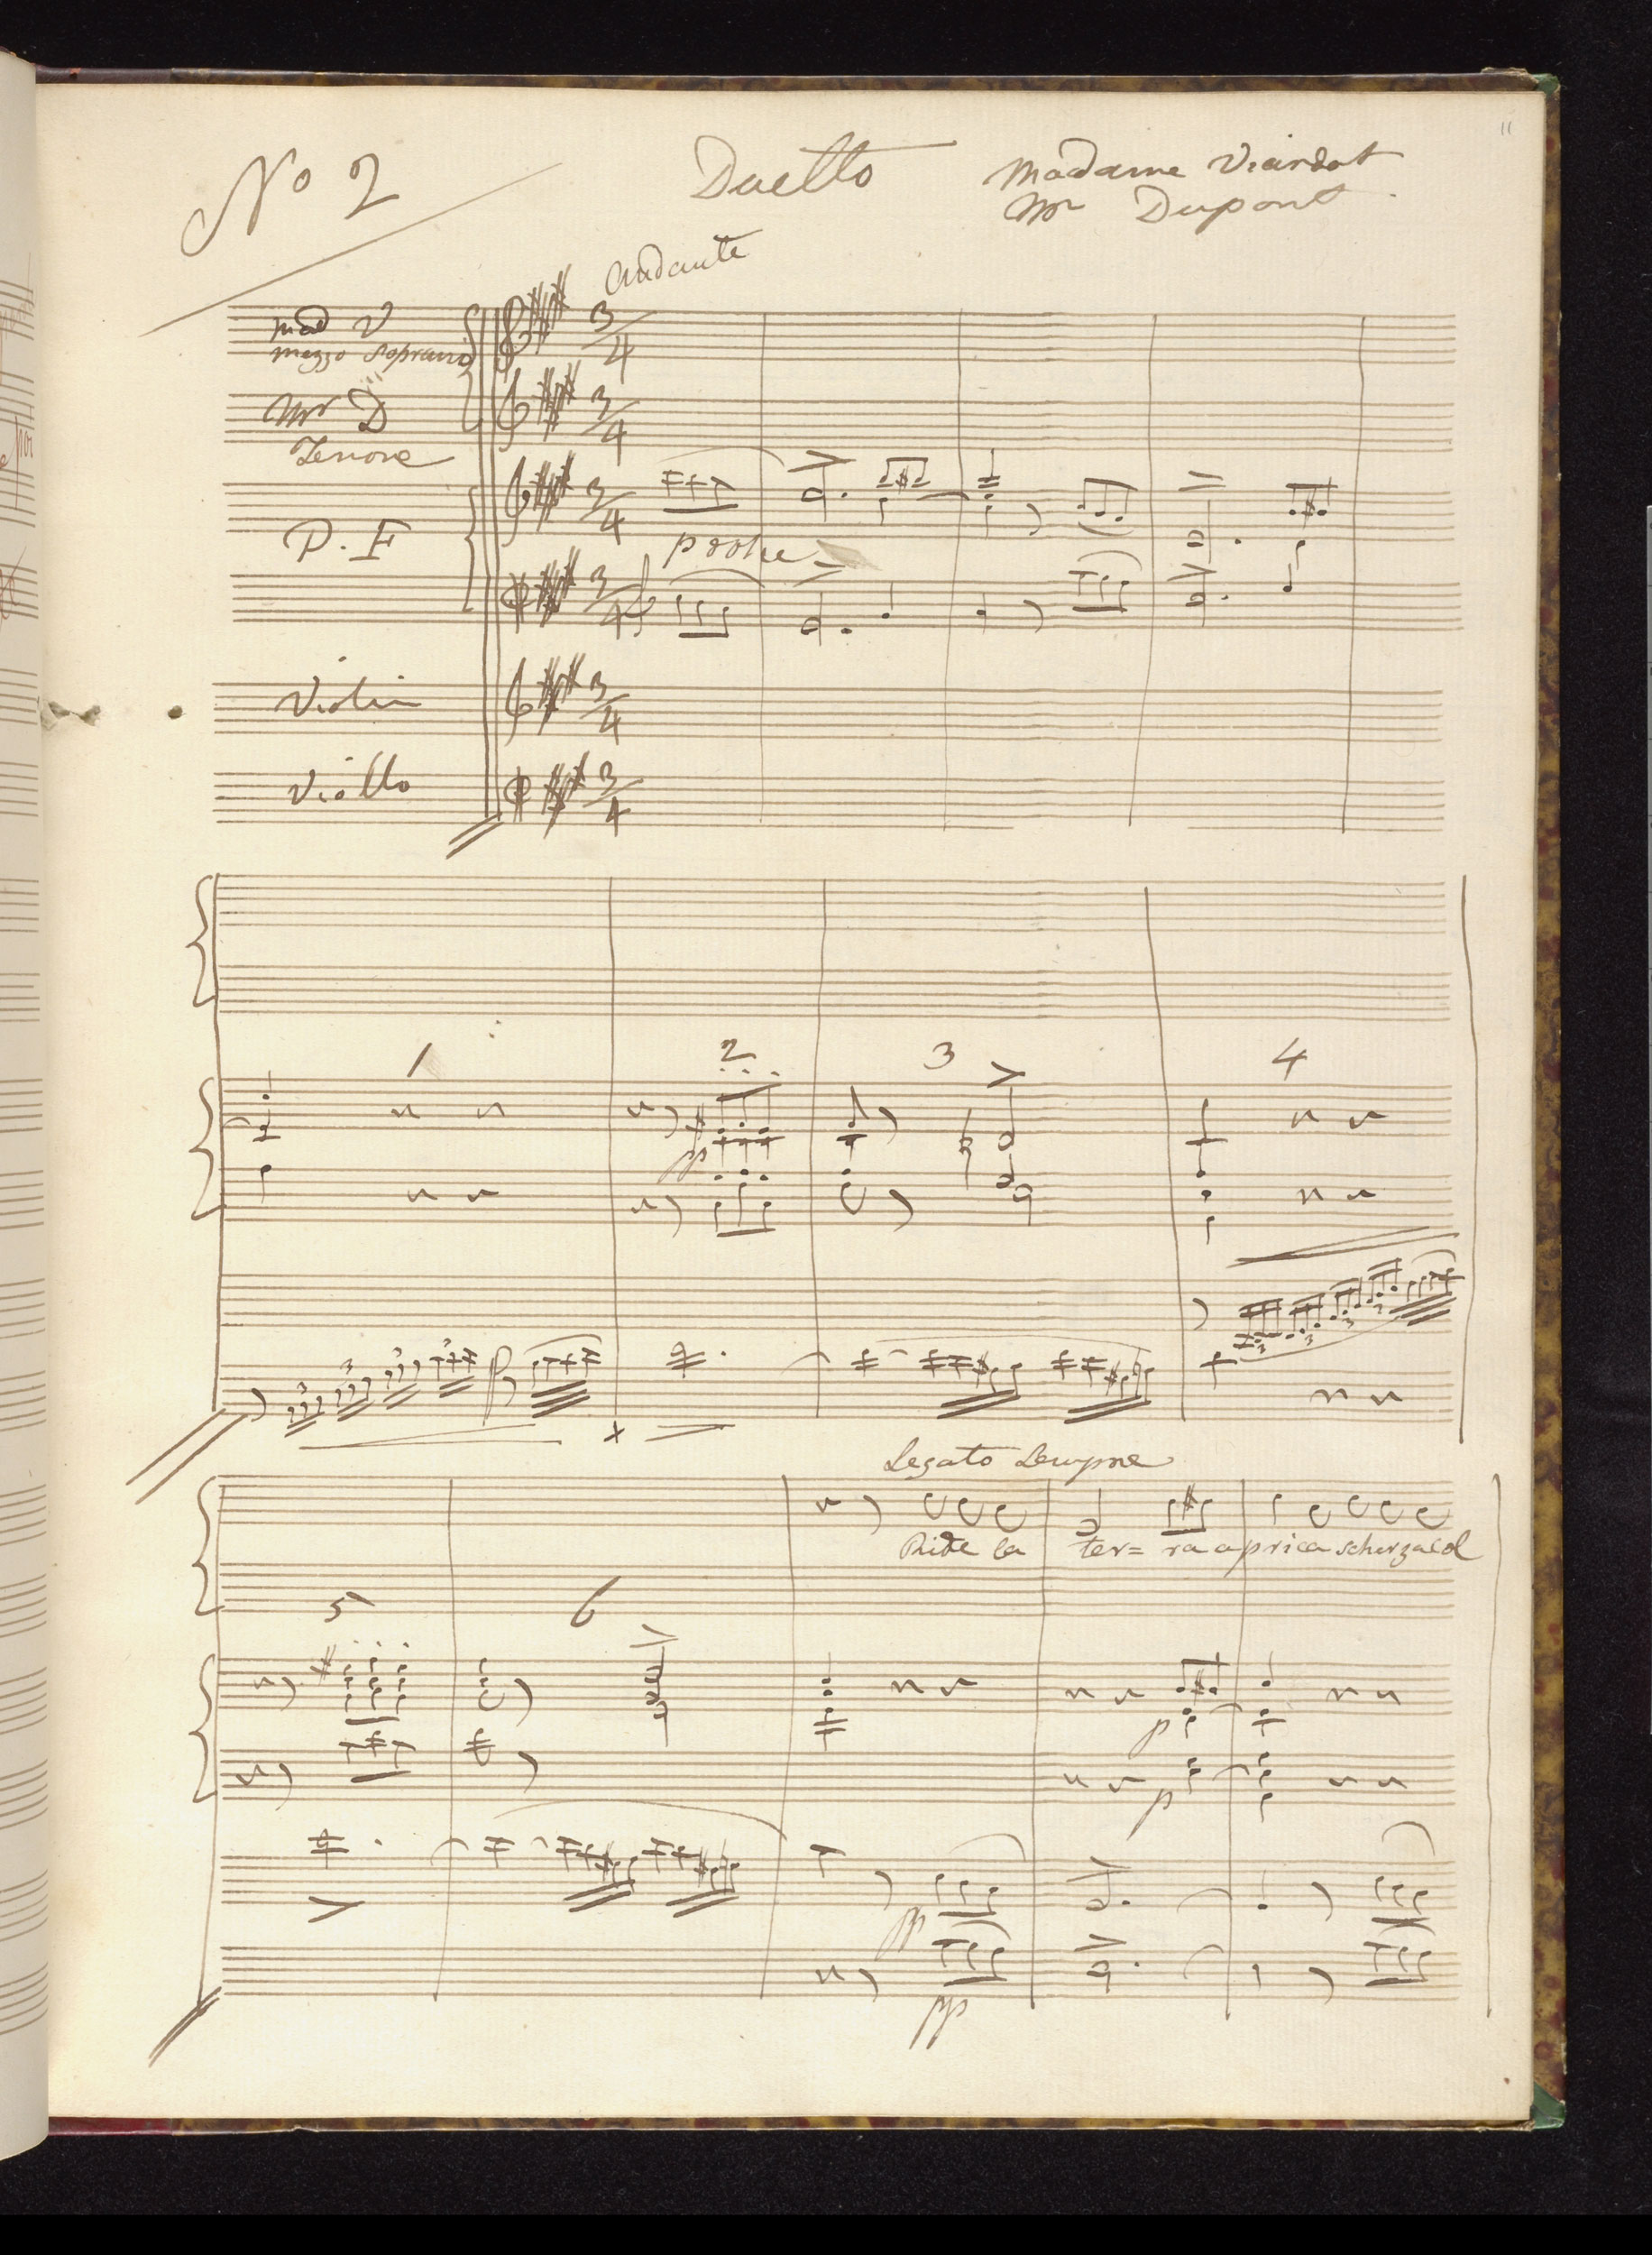 11
No 2 Duetto Madame Viardot
Mr Dupont
Andante
Mad V
mezzo Soprano
3/4
Mr D
Tenore
3/4
P. F
3/4
3/4
Violin
3/4
Viollo
3/4
1 2 3 4
pp
3 3 3
3 3 3
Legato Sempre
Ride la ter= ra aprica scherza col
5 6
p
p
pp
pp